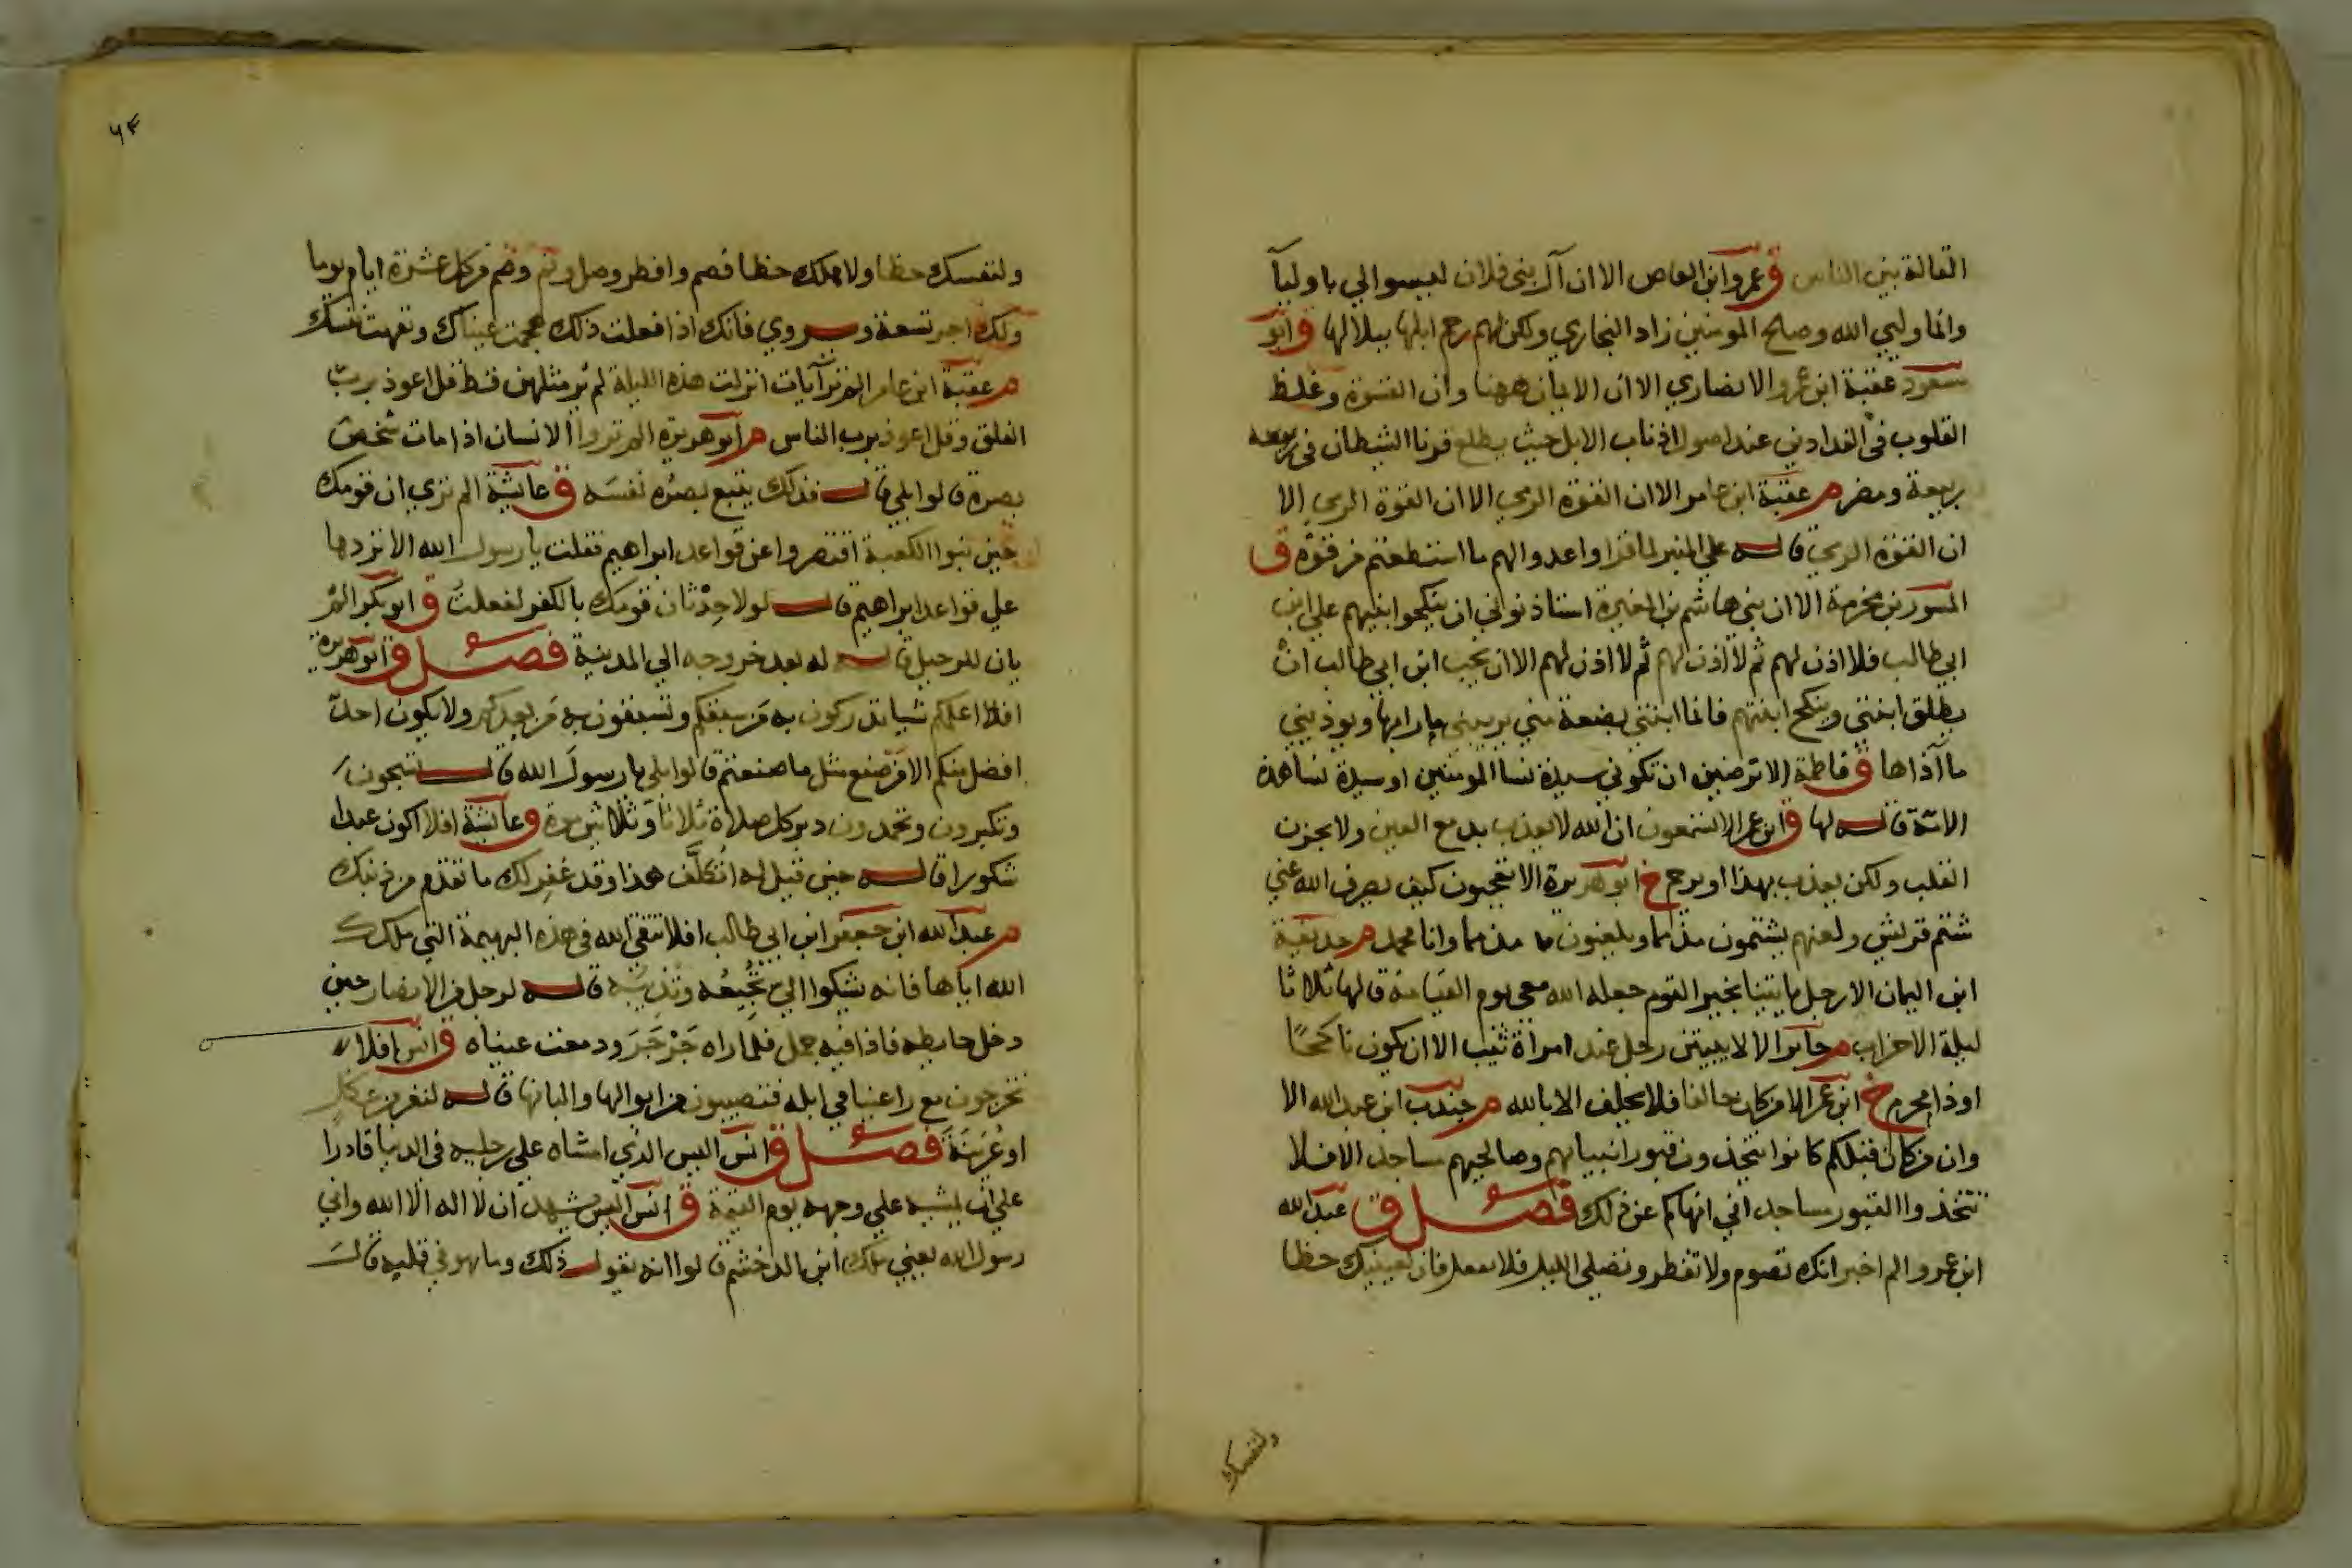 القالة بين الناس ق عمرو ابن العاص الا ان آل بني فلان ليسوا الي باوليآ
وانما وليي الله وصالح المومنين زاد البخاري ولكن لهم رحم ابلها ببلالها ق ابو
مسعود عقبة ابن عمرو الانصاري الا ان الايمان ههنا وان القسوة وغلظ
القلوب في الفدادين عند اصول اذناب الابل حيث يطلع قرنا الشيطان في
ربيعة ومضر م عقبة ابن عامر الا ان القوة الرمي الا ان القوة الرمي الا
ان القوة الرمي قاله علي المنبر لما قرا واعدوا لهم ما استطعتم من قوة ق
المسور بن مخرمة الا ان بني هاشم بن المغيرة استاذنوني ان ينكحوا ابنتهم علي ابن
ابي طالب فلا اذن لهم ثم لا اذن لهم ثم لا اذن لهم الا ان يحب ابن ابي طالب ان
يطلق ابنتي وينكح ابنتهم فانما ابنتي بضعة مني يريبني ما رابها ويوذيني
ما آذاها ق فاطمة الا ترضين ان تكوني سيدة نسا المومنين او سيدة نسا هذه
الامة قاله لها ق ابن عمر الا تسمعون ان الله لا يعذب بدمع العين ولا بحزن
القلب ولكن يعذب بهذا او يرحم خ ابو هريرة الا تعجبون كيف يصرف الله عني
شتم قريش ولعنهم يشتمون مذمما ويلعنون مذمما وانا محمد م حذيفة
ابن اليمان الا رجل ياتينا بخبر القوم جعله الله معي يوم القيامة قالها ثلاثا
ليلة الاحزاب م جابر الا لا يبيتن رجل عند امراة ثيب الا ان يكون ناكحًا
او ذا محرم خ ابن عمر الا من كان حالفا فلا يحلف الا بالله م جندب ابن عبد الله الا
وان من كان قبلكم كانوا يتخذون قبور انبيائهم وصالحيهم مساجد الا فلا
تتخذوا القبور مساجد اني انهاكم عن ذلك فصل ق عبد الله
ابن عمرو الم اخبر انك تصوم ولا تفطر وتصلي الليل فلا تفعل فان لعينيك حظا
ولنفسك
٦٤
ولنفسك حظا ولاهلك حظا فصم وافطر وصل ونم وصم من كل عشرة ايام يوما
ولك اجر تسعة ويروي فانك اذا فعلت ذلك هجمت عيناك ونفهت نفسك
م عقبة ابن عامر الم تر آيات انزلت هذه الليلة لم ير مثلهن قط قل اعوذ برب
الفلق وقل اعوذ برب الناس م ابو هريرة الم تروا الانسان اذا مات شخص
بصره قالوا بلي قال فذلك يتبع بصره نفسه ق عايشة الم تري ان قومك
حين بنوا الكعبة اقتصروا عن قواعد ابراهيم فقلت يا رسول الله الا تردها
علي قواعد ابراهيم قال لولا حدثان قومك بالكفر لفعلت ق ابو بكر الم
يان للرحيل قاله له بعد خروجه الي المدينة فصل ق ابو هريرة
افلا اعلمكم شيا تدركون به من سبقكم وتسبقون به من بعدكم ولا يكون احد
افضل منكم الا من صنع مثل ما صنعتم قالوا بلي يا رسول الله قال تسبحون
وتكبرون وتحمدون دبر كل صلاة ثلاثا وثلاثين مرة ق عايشة افلا اكون عبدا
شكورا قاله حين قيل له اتكلف هذا وقد غفر لك ما تقدم من ذنبك
م عبد الله ابن جعفر ابن ابي طالب افلا تتقي الله في هذه البهيمة التي ملكك
الله اياها فانه يشكوا الي تجيعه وتذيبه قاله لرجل من الانصار حين
دخل حايطه فاذا فيه جمل فلما راه جرجر ودمعت عيناه ق انس افلا
تخرجون مع راعينا في ابله فتصيبون من ابوالها والبانها قاله لنفر من عكل
او عرينة فصل ق انس اليس الذي امشاه علي رجليه في الدنيا قادرا
علي ان يمشيه علي وجهه يوم القيمة ق انس اليس يشهد ان لا اله الا الله واني
رسول الله يعني ملك ابن الدخشم قالوا انه يقول ذلك وما هو في قلبه قال